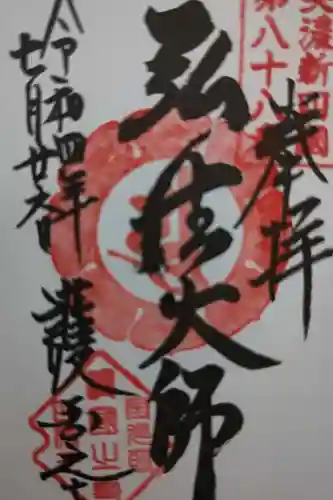 美濃新四国
第八十八番
奉拝
弘法大師
令和四年
七月廿六日
護国之寺